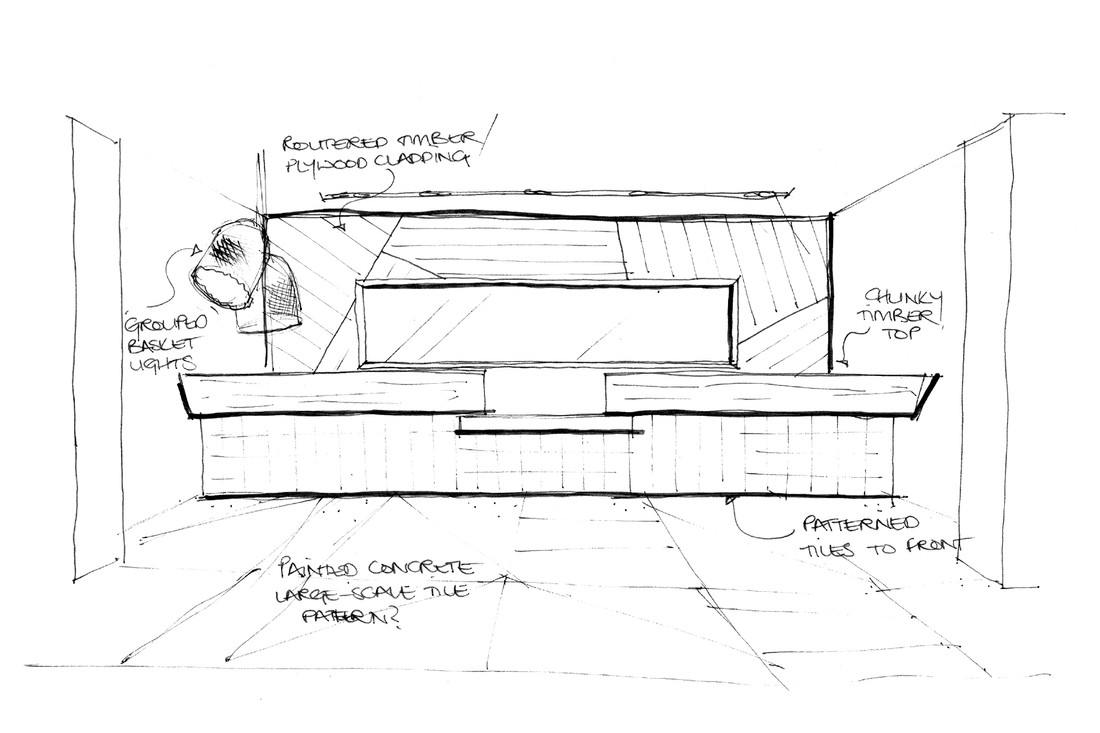 ROUTERED TIMBER
PLYWOOD CLADDING
'GROUPED'
BASKET
LIGHTS
CHUNKY
TIMBER
TOP
PATTERNED
TILES TO FRONT
PAINTED CONCRETE
LARGE-SCALE TILE
PATTERN?